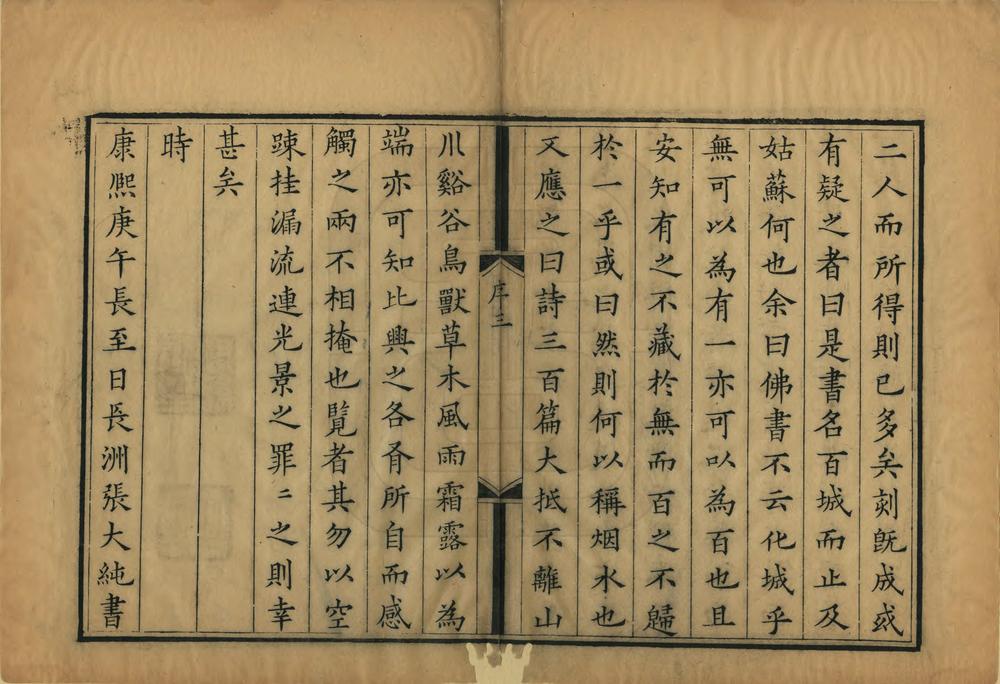 二人而所得則已多矣刻旣成或
有疑之者曰是書名百城而止及
姑蘇何也余曰佛書不云化城乎
無可以為有一亦可以為百也且
安知有之不藏於無而百之不歸
於一乎或曰然則何以稱烟水也
又應之曰詩三百篇大抵不離山
序三
川谿谷鳥獸草木風雨霜露以為
端亦可知比興之各有所自而感
觸之兩不相掩也覽者其勿以空
踈挂漏流連光景之罪二之則幸
甚矣
時
康熙庚午長至日長洲張大純書